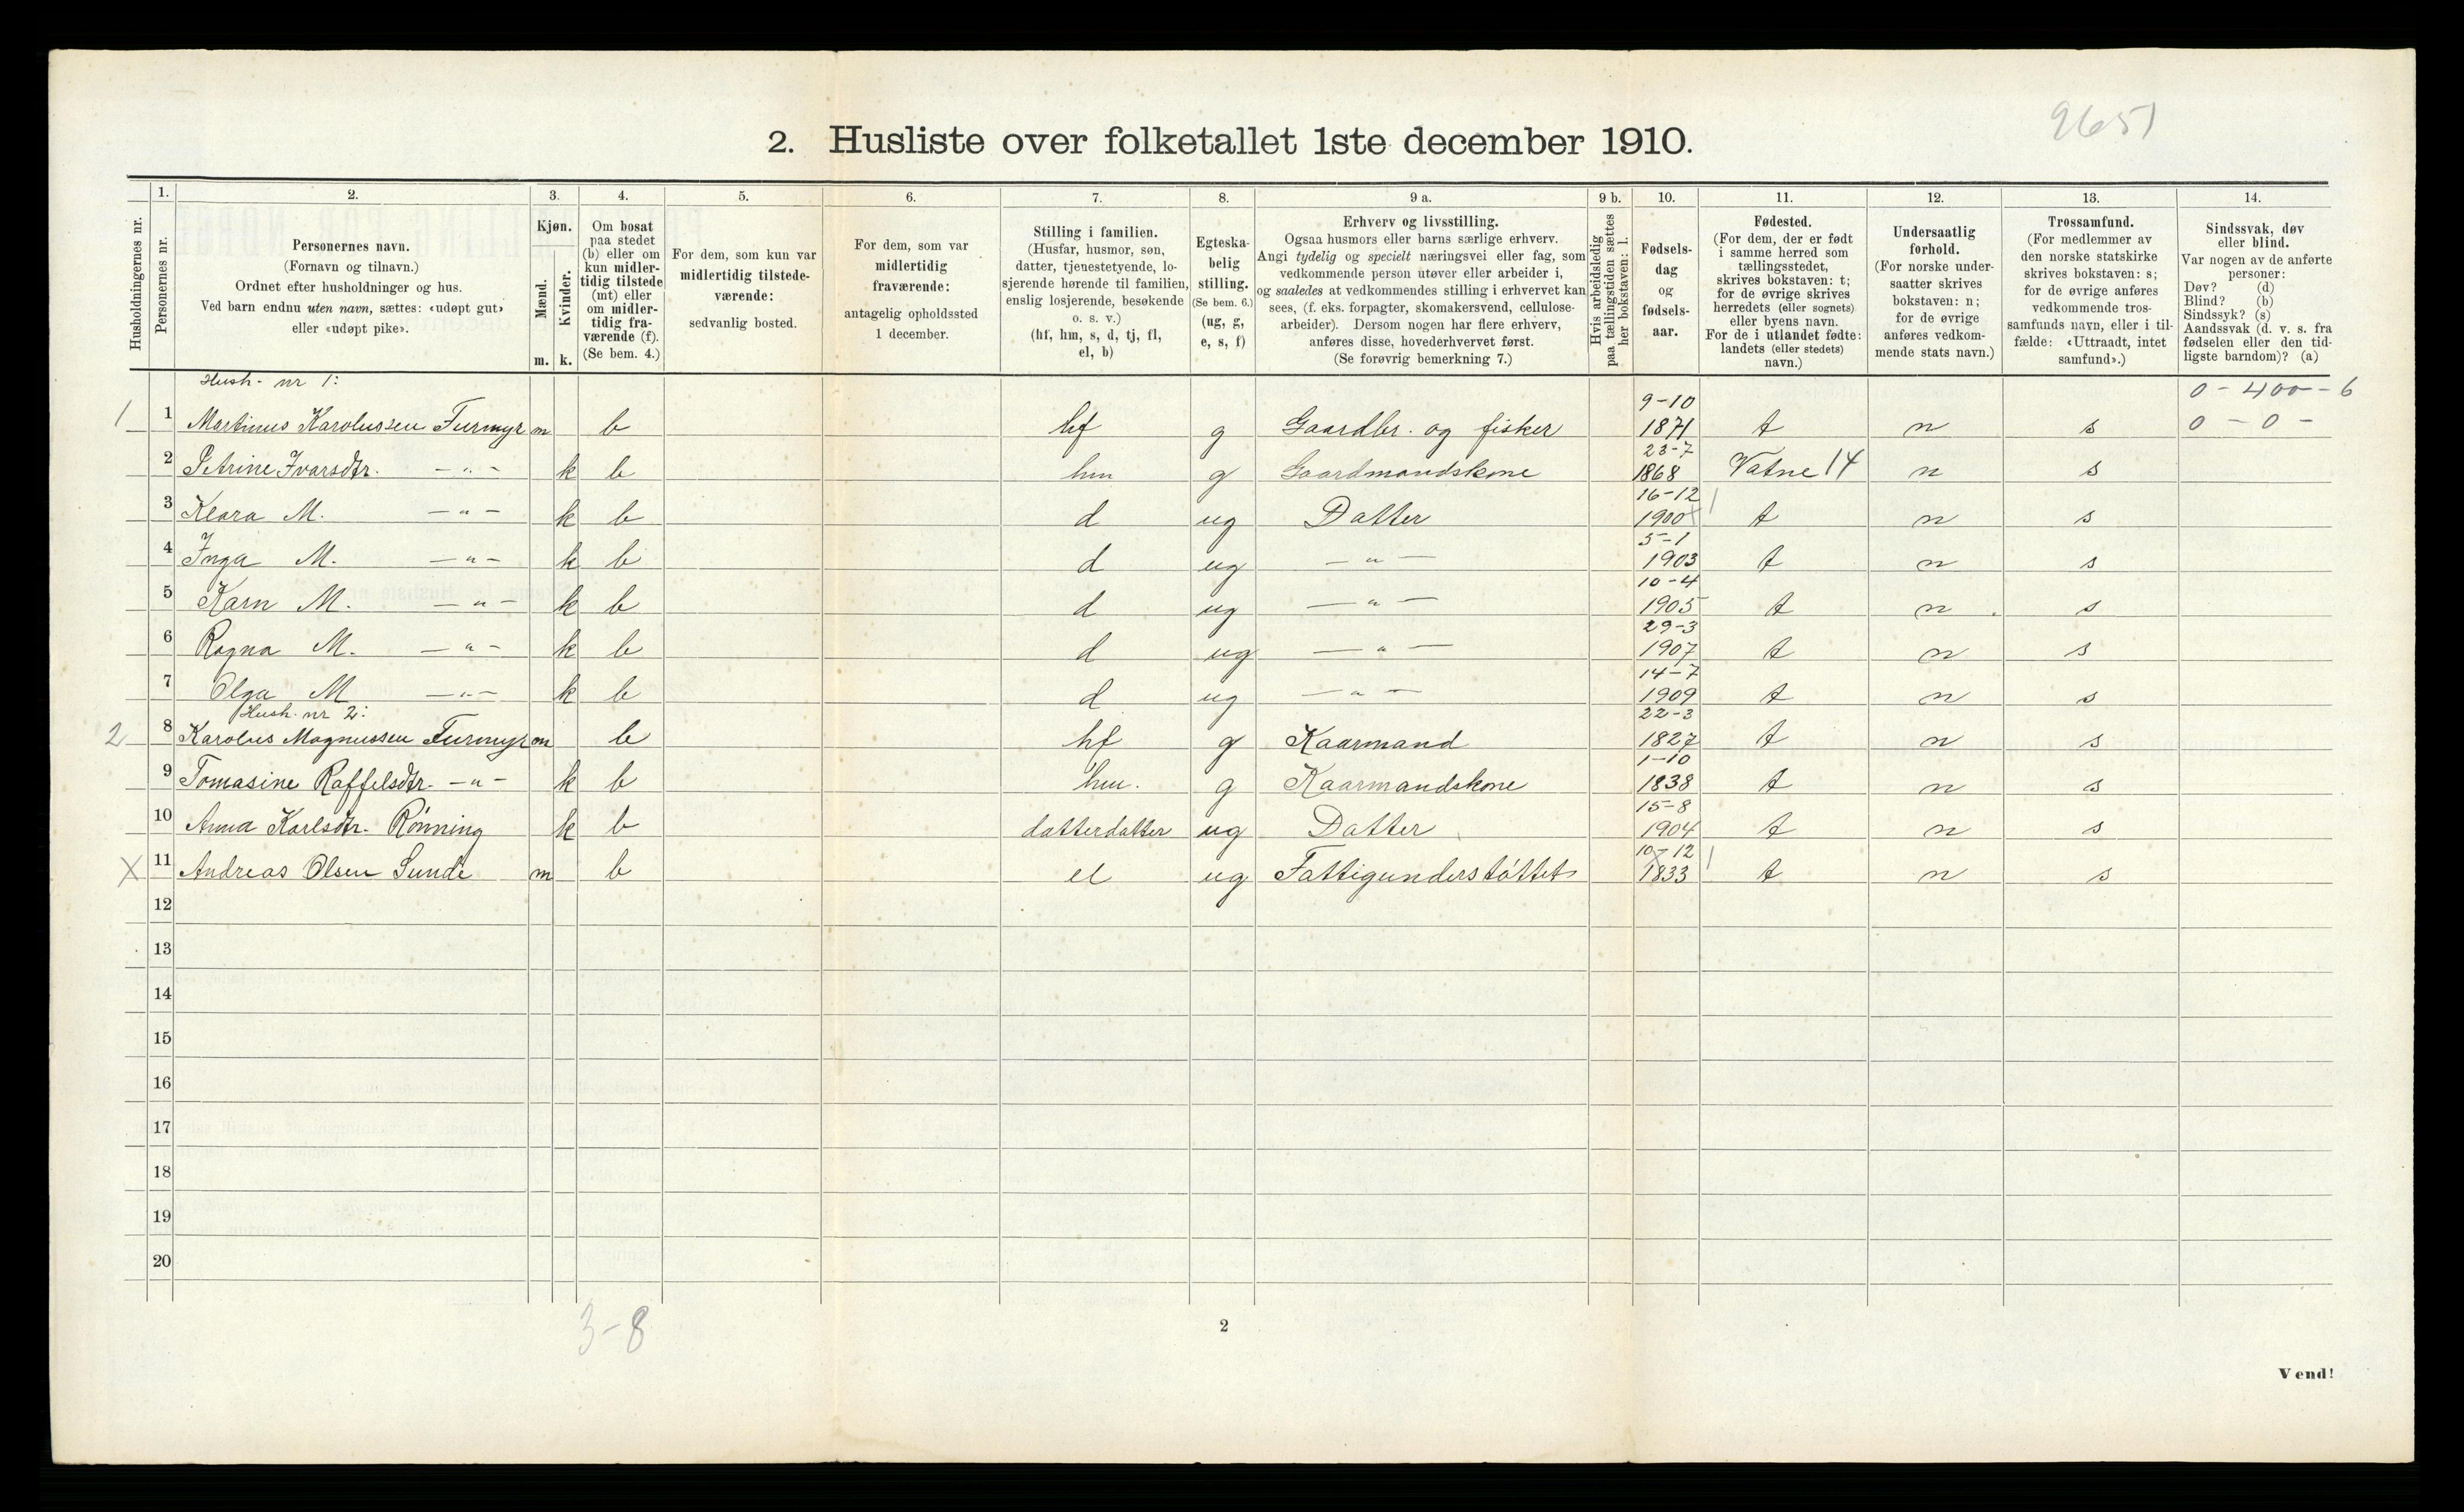 9651
2. Husliste over folketallet 1ste december 1910.
1. 2. 3. 4. 5. 6. 7. 8. 9 a. 9 b. 10. 11. 12. 13. 14.
Husholdningernes nr.
Personernes nr.
Personernes navn.
(Fornavn og tilnavn.)
Ordnet efter husholdninger og hus.
Ved barn endnu uten navn, sættes: «udøpt gut»
eller «udøpt pike».
Kjøn.
Mænd.
Kvinder.
m. k.
Om bosat
paa stedet
(b) eller om
kun midler-
tidig tilstede
(mt) eller
om midler-
tidig fra-
værende (f).
(Se bem. 4.)
For dem, som kun var
midlertidig tilstede-
værende:
sedvanlig bosted.
For dem, som var
midlertidig
fraværende:
antagelig opholdssted
1 december.
Stilling i familien.
(Husfar, husmor, søn,
datter, tjenestetyende, lo-
sjerende hørende til familien,
enslig losjerende, besøkende
o. s. v.)
(hf, hm, s, d, tj, fl,
el, b)
Egteska-
belig
stilling.
(Se bem. 6.)
(ug, g,
e, s, f)
Erhverv og livsstilling.
Ogsaa husmors eller barns særlige erhverv.
Angi tydelig og specielt næringsvei eller fag, som
vedkommende person utøver eller arbeider i,
og saaledes at vedkommendes stilling i erhvervet kan
sees, (f. eks. forpagter, skomakersvend, cellulose-
arbeider). Dersom nogen har flere erhverv,
anføres disse, hovederhvervet først.
(Se forøvrig bemerkning 7.)
Hvis arbeidsledig
paa tællingstiden sættes
her bokstaven: l.
Fødsels-
dag
og
fødsels-
aar.
Fødested.
(For dem, der er født
i samme herred som
tællingsstedet,
skrives bokstaven: t;
for de øvrige skrives
herredets (eller sognets)
eller byens navn.
For de i utlandet fødte:
landets (eller stedets)
navn.)
Undersaatlig
forhold.
(For norske under-
saatter skrives
bokstaven: n;
for de øvrige
anføres vedkom-
mende stats navn.)
Trossamfund.
(For medlemmer av
den norske statskirke
skrives bokstaven: s;
for de øvrige anføres
vedkommende tros-
samfunds navn, eller i til-
fælde: «Uttraadt, intet
samfund».)
Sindssvak, døv
eller blind.
Var nogen av de anførte
personer:
Døv? (d)
Blind? (b)
Sindssyk? (s)
Aandssvak (d. v. s. fra
fødselen eller den tid-
ligste barndom)? (a)
Hush. nr 1: 0 - 400 - 6
1 1 Martinus Karolussen Furmyr m b hf g Gaardbr. og fisker 9-10 1871 t n s 0 - 0 -
2 Petrine Ivarsdtr. — " — k b hm g Gaardmandskone 23-7 1868 Vatne 14 n s
3 Klara M. — " — k b d ug Datter 16-12 1900 t n s
4 Inga M. — " — k b d ug — " — 5-1 1903 t n s
5 Karn M. — " — k b d ug — " — 10-4 1905 t n s
6 Ragna M. — " — k b d ug — " — 29-3 1907 t n s
7 Olga M — " — k b d ug — " — 14-7 1909 t n s
Hush. nr 2:
2 8 Karolus Magnussen Furmyr m b hf g Kaarmand 22-3 1827 t n s
9 Tomasine Raffelsdtr. — " — k b hm. g Kaarmandskone 1-10 1838 t n s
10 Anna Karlsdtr. Rönning k b datterdatter ug Datter 15-8 1904 t n s
X 11 Andreas Olsen Sunde m b el ug Fattigunderstöttet 10-12 1833 t n s
12
13
14
15
16
17
18
19
20
3-8
2
Vend!